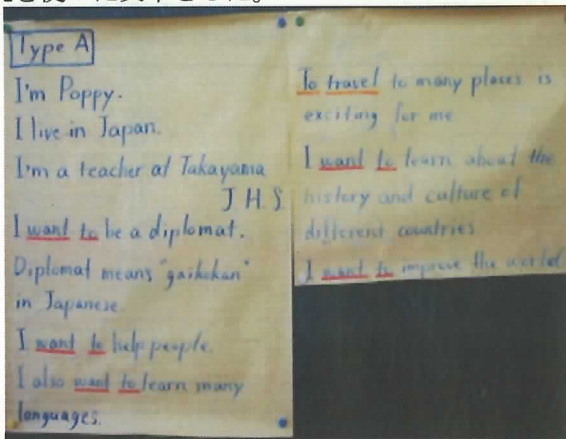 Type A
I'm Poppy.
I live in Japan.
I'm a teacher at Takayama
J H. S.
I want to be a diplomat.
Diplomat means "gaikokan"
in Japanese
I want to help people.
I also want to learn many
languages.
To travel to many places is
exciting for me
I want to learn about the
history and culture of
different countries
I want to improve the world